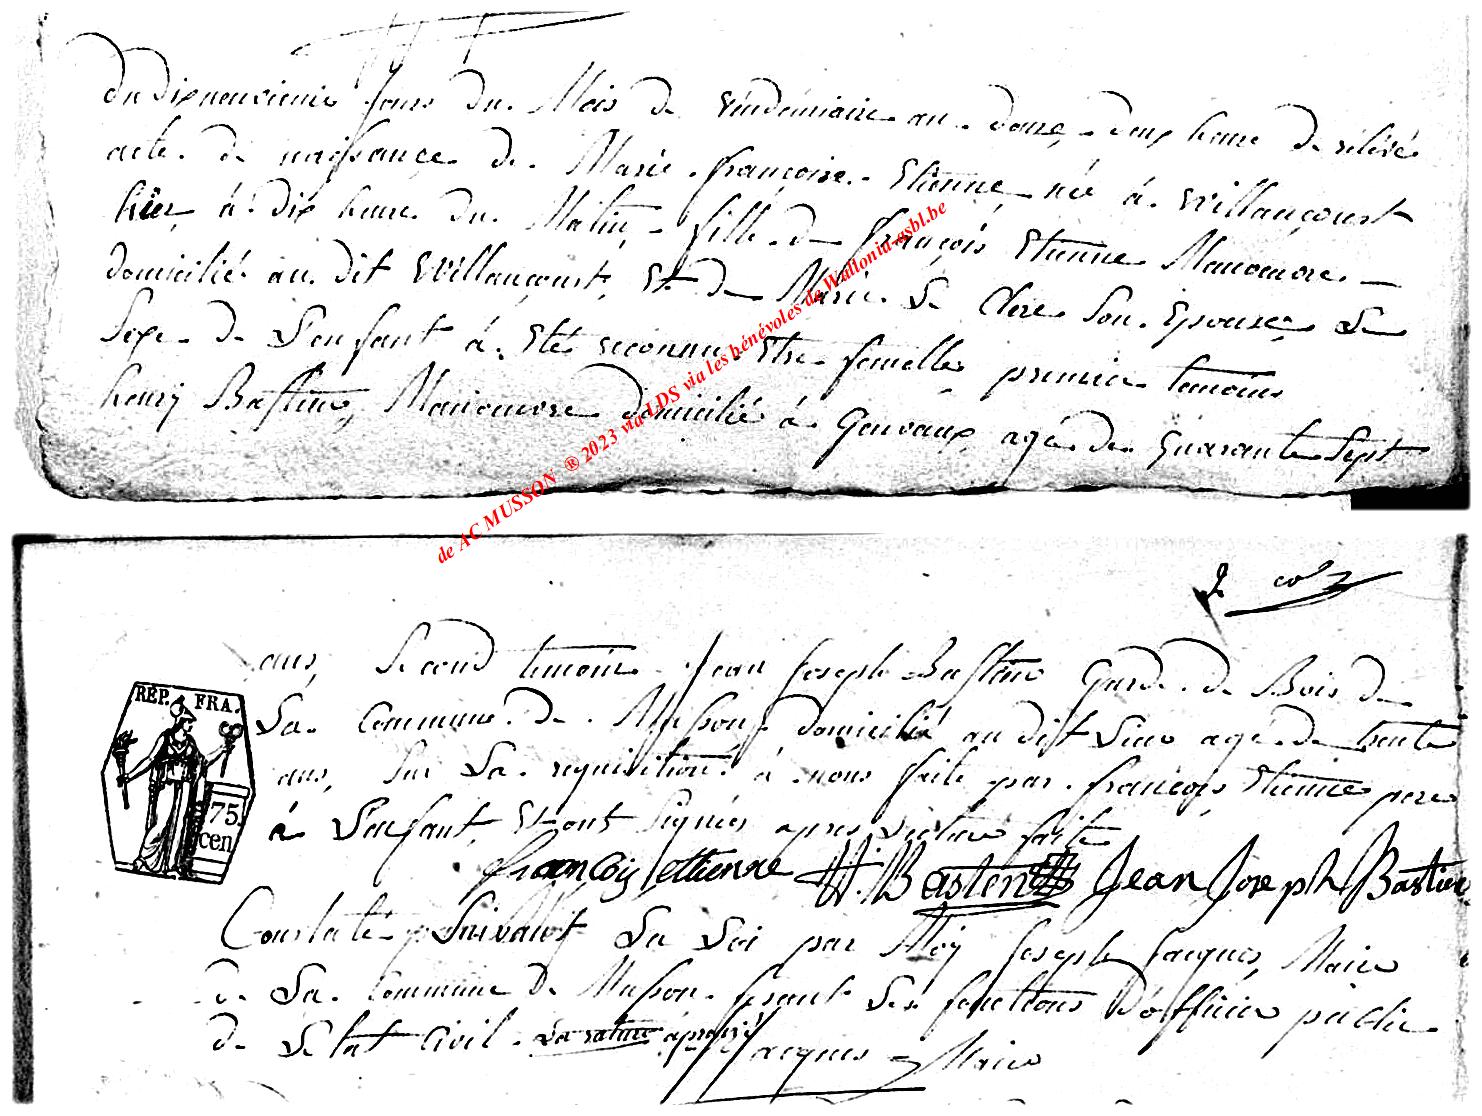 du dixneuvieme jour du Mois de vindemiaire an douze, deux heure de relévé
acte de naissance de Marie françoise Etienne née à Willancourt
hier à dix heure du Matin, fille de françois Etienne Manoevre
domicilié au dit Willancourt, Et de Marie Le Clere Son Epouse, Le
Sexe de L'enfant à Eté reconnu Etre femelle, premier temoins
henry Bastin, Manoevre domicilié à Gouvaux, agé de quarante Sept
de AC MUSSON ® 2023 via LDS via les bénévoles de Wallonia-asbl.be
ans, Second temoin Jean Joseph Bastin Garde de Bois de
La Commune de Musson domicilié au dit Lieu agé de trente
ans, Sur La requisition à nous faite par françois Etienne pere
à L'enfant, Et ont Signés apres Lecture faite
RÉP. FRA.
75
cen
françois ettienne H. Basten Jean Joseph Bastien
Constaté Suivant La Loi par Moy Joseph Jacques, Maire
de La Commune de Musson fesant Les fonctions D'officier public
de L'etat Civil. La rature aprouvé Jacques Maire